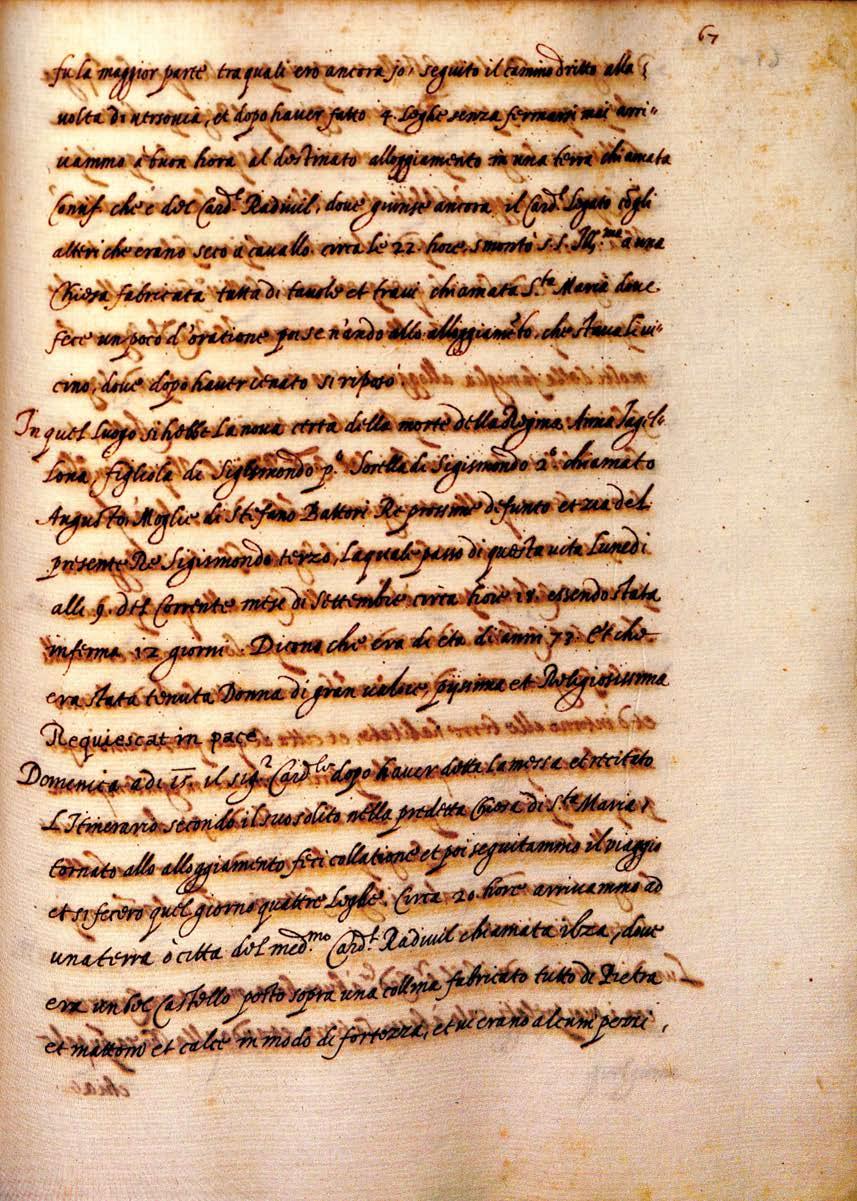 67
fu la maggior parte tra quali ero ancora jo, seguito il camino dritto alla
volta di Versovia, et dopo haver fatto 4 leghe senza fermarsi mai arri-
vammo à buon hora al destinato alloggiamento in una terra chiamata
che è del Card.l Radivil, dove giunse ancora il Card.l Legato cõgli
altri che erano seco à cavallo circa le 22 hore, smontò S.S. Ill.ma a una
Chiesa fabricata tutta di tavole et travi chiamata S.ta Maria dove
fece un poco d'oratione poi se n'andò allo alloggiamẽto, che stava li vi-
cino, dove dopo haver cenato si riposò
In quel luogo si hebbe la nova certa della morte della Regina Anna Jagel-
lona, figliola di Sigismondo p.o Sorella di Sigismondo 2.o chiamato
Augusto, Moglie di Stefano Battori Re prossimo defunto et zia del
presente Re Sigismondo terzo, la quale passò di questa vita Lunedi
alli 9. del corrente mese di Settembre circa hore 18. essendo stata
inferma 12 giorni. Dicono che era di età di anni 73. Et che
era stata tenuta Donna di gran valore, pijssima et Religiosissima
Requiescat in pace
Domenica adi 15. il sig.r Card.le dopo haver detta la messa et recitato
L'Itinerario secondo il suo solito nella predetta Chiesa di S.ta Maria,
tornato allo alloggiamento feci collatione et poi seguitammo il viaggio
et si fecero quel giorno quattro leghe. Circa 20 hore arrivammo ad
una terra ò città del med.mo Card.l Radivil chiamata ilza, dove
era un bel Castello posto sopra una collina fabricato tutto di Pietra
et mattoni et calce in modo di fortezza, et vi erano alcuni pezzi,